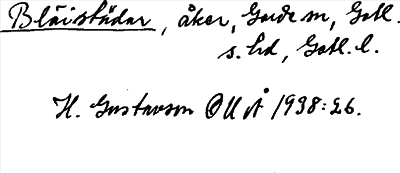 Bläistädar, åker, Garde sn, Gotl.
s. hd, Gotl. l.
H. Gustavson OUÅ 1938: 26.